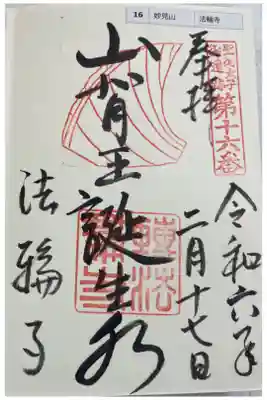 16 妙見山 法輪寺
奉拝
聖徳太子
第十六番
令和六年
二月十七日
山背王誕生水
法輪寺